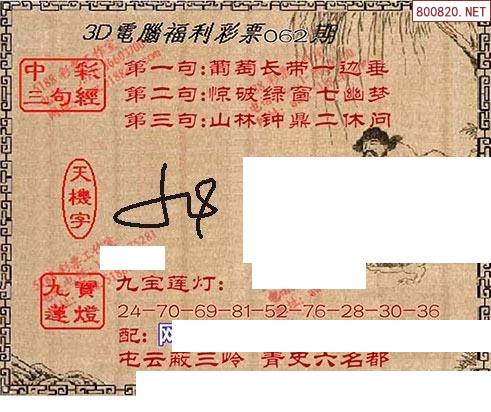 800820.NET
3D電腦福利彩票062期
中彩
三句經
第一句:葡萄长带一边垂
第二句:惊破绿窗七幽梦
第三句:山林钟鼎二休问
天機字
九寶
蓮燈
九宝莲灯:
24-70-69-81-52-76-28-30-36
配: 网
屯云蔽三岭 青史六名都